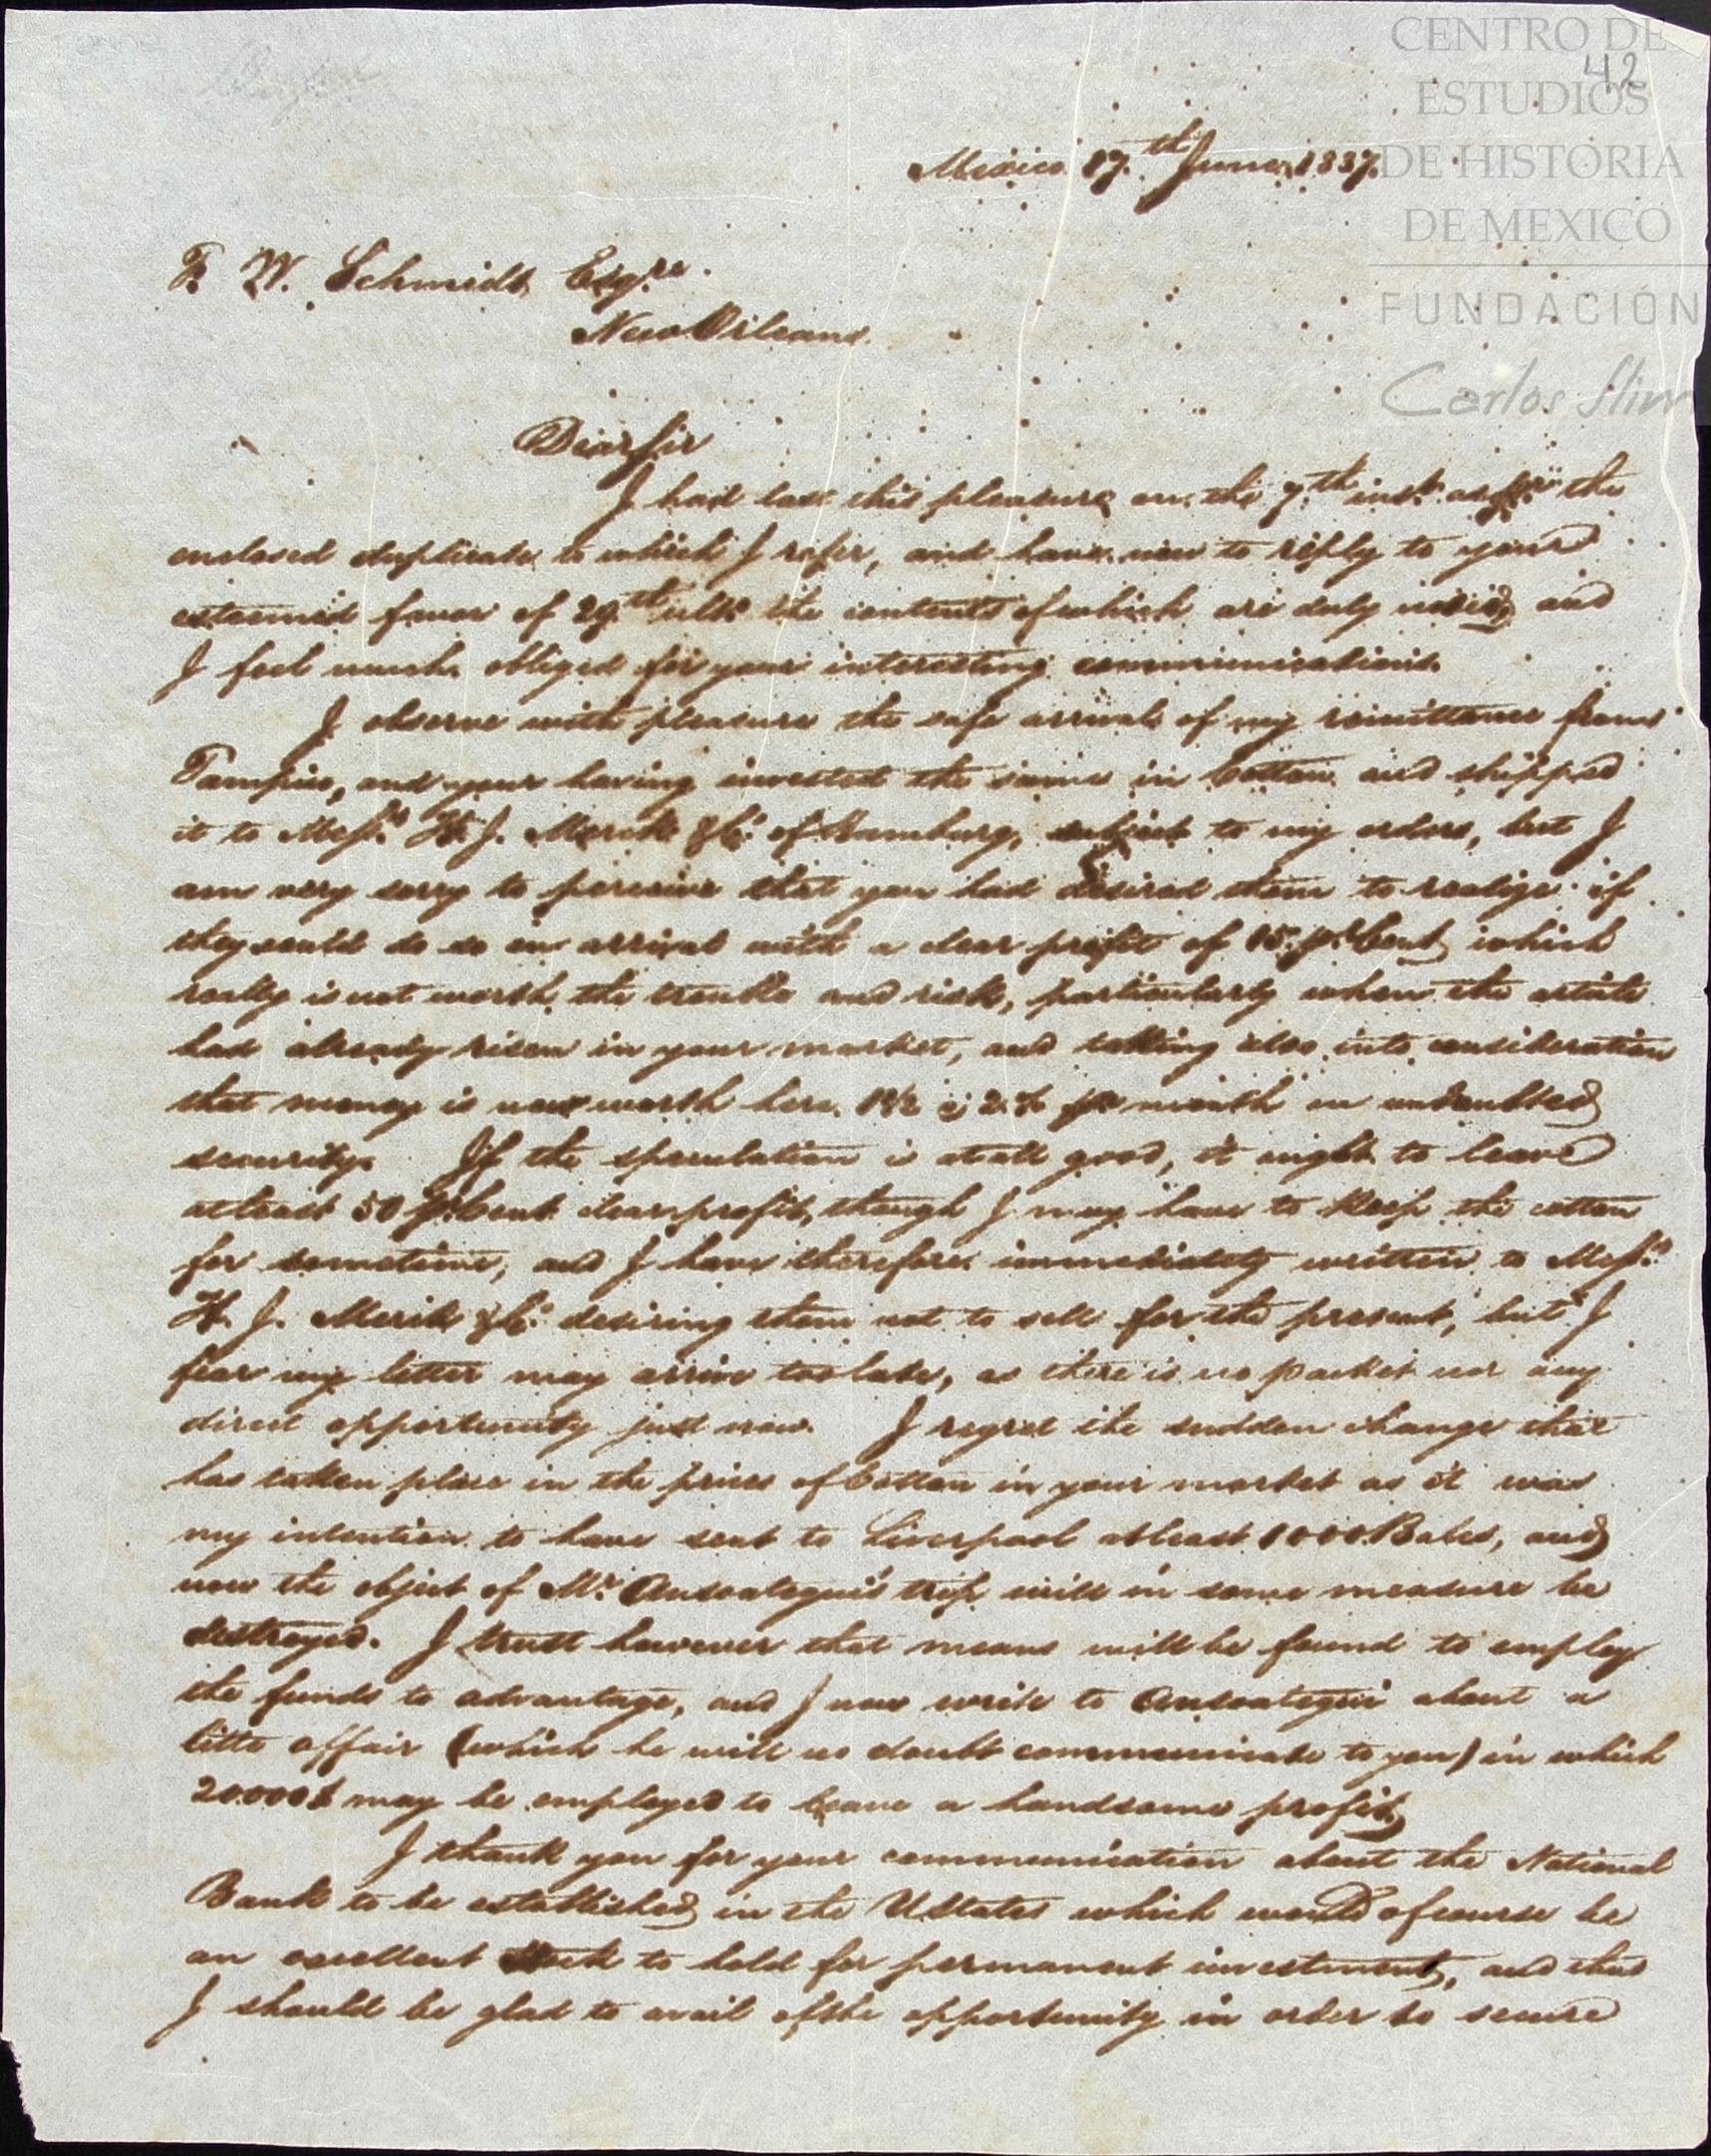 CENTRO DE
ESTUDIOS
DE HISTORIA
DE MEXICO
FUNDACIÓN
Carlos Slim
42
Mexico 17.th June 1837.
F. W. Schmidt Esqre.
New Orleans
Dear Sir
I had last this pleasure on the 7.th inst. as pr the
enclosed duplicate to which I refer, and have now to reply to your
esteemed favor of 29.th ulto. the contents of which are duly noted, and
I feel much obliged for your interesting communications.
I observe with pleasure the safe arrival of my remittance from
Tampico, and your having invested the same in Cotton and shipped
it to Messrs. H. J. Merck & Co. of Hamburg, subject to my orders, but I
am very sorry to perceive that you had desired them to realize if
they could do so on arrival with a clear profit of 15 pr Cent, which
really is not worth the trouble and risk, particularly when the article
had already risen in your market, and taking also into consideration
that money is now worth here 1 1/2 @ 2 % pr month on undoubted
security. If the speculation is at all good, it ought to leave
at least 50 pr Cent clear profit, though I may have to keep the cotton
for sometime, and I have therefore immediately written to Messrs.
H. J. Merck & Co. desiring them not to sell for the present, but I
fear my letter may arrive too late, as there is no packet nor any
direct opportunity just now. I regret the sudden change that
has taken place in the prices of Cotton in your market as it was
my intention to have sent to Liverpool at least 1000 Bales, and
now the object of Mr. Ansoategui's trip will in some measure be
destroyed. I trust however that means will be found to employ
the funds to advantage, and I now write to Ansoategui about a
little affair (which he will no doubt communicate to you) in which
20.000$ may be employed to leave a handsome profit.
I thank you for your communication about the National
Bank to be established in the UStates which would of course be
an excellent Stock to hold for permanent investment, and that
I should be glad to avail of the opportunity in order to secure